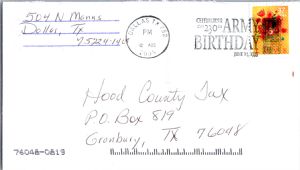 504 N Manus
Dallas, Tx
75224-14
DALLAS TX
PM
2005
CELEBRATING
THE 230TH ARMY
BIRTHDAY
JUNE 14, 2005
Hood County Tax
P.O. Box 819
Granbury, TX 76048
76048-0819